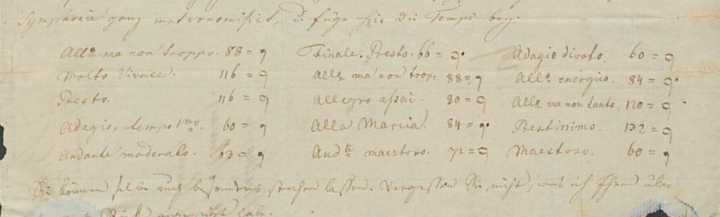 Symphonie ganz metronomisirt, u füge hier die Tempi bey.
Allo ma non troppo. 88 = ♩ Finale. Presto. 66 = 𝅗𝅥. Adagio divoto. 60 = 𝅗𝅥
Molto Vivace. 116 = 𝅗𝅥 Allo ma non trop: 88 = ♩ Allo energico. 84 = 𝅗𝅥.
Presto. 116 = 𝅗𝅥 Allegro assai. 80 = 𝅗𝅥 Allo ma non tanto. 120 = 𝅗𝅥
Adagio, tempo 1mo. 60 = ♩ Alla Marcia. 84 = ♩. Prestissimo. 132 = 𝅗𝅥
Andante moderato. 63 = ♩ Andte maestoso. 72 = 𝅗𝅥 Maestoso. 60 = ♩
Sie können selbe auch besonders stechen lassen. Vergessen Sie nicht, was ich Ihnen über